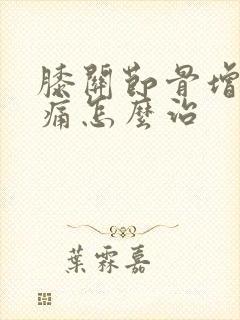 膝關節骨增
痛怎麼治
葉霖嘉